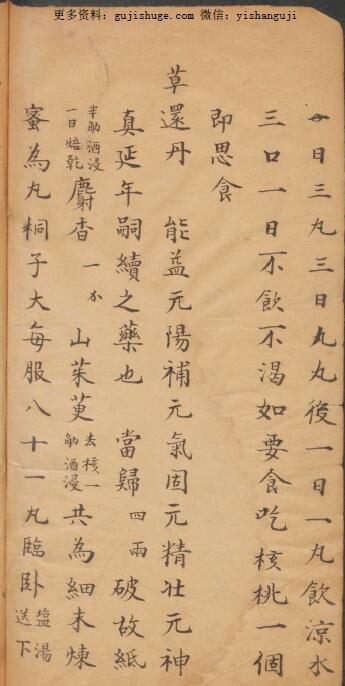 更多资料:gujishuge.com 微信:yishanguji
日三丸三日丸丸後一日一丸飲涼水
三口一日不飲不渴如要食吃核桃一個
即思食
草還丹 能益元陽補元氣固元精壯元神
真延年嗣續之藥也 當歸四兩 破故紙
半觔酒浸一日焙乾 麝香一 山茱萸去核一觔酒浸 共為細末煉
蜜為丸桐子大每服八十一丸臨臥鹽湯送下